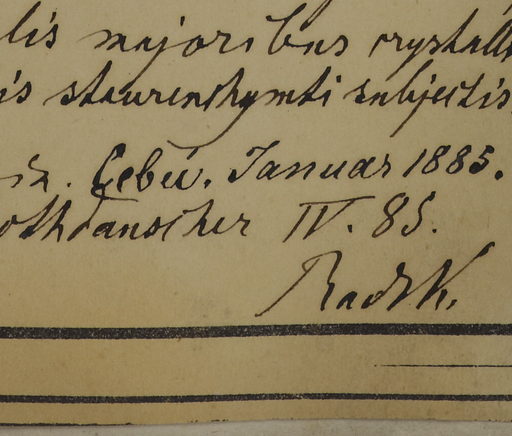 lis majoribus crystall
is staurenchymti subjectis
iz. Cebú. Januar 1885.
othdauscher IV. 85.
Radlk.